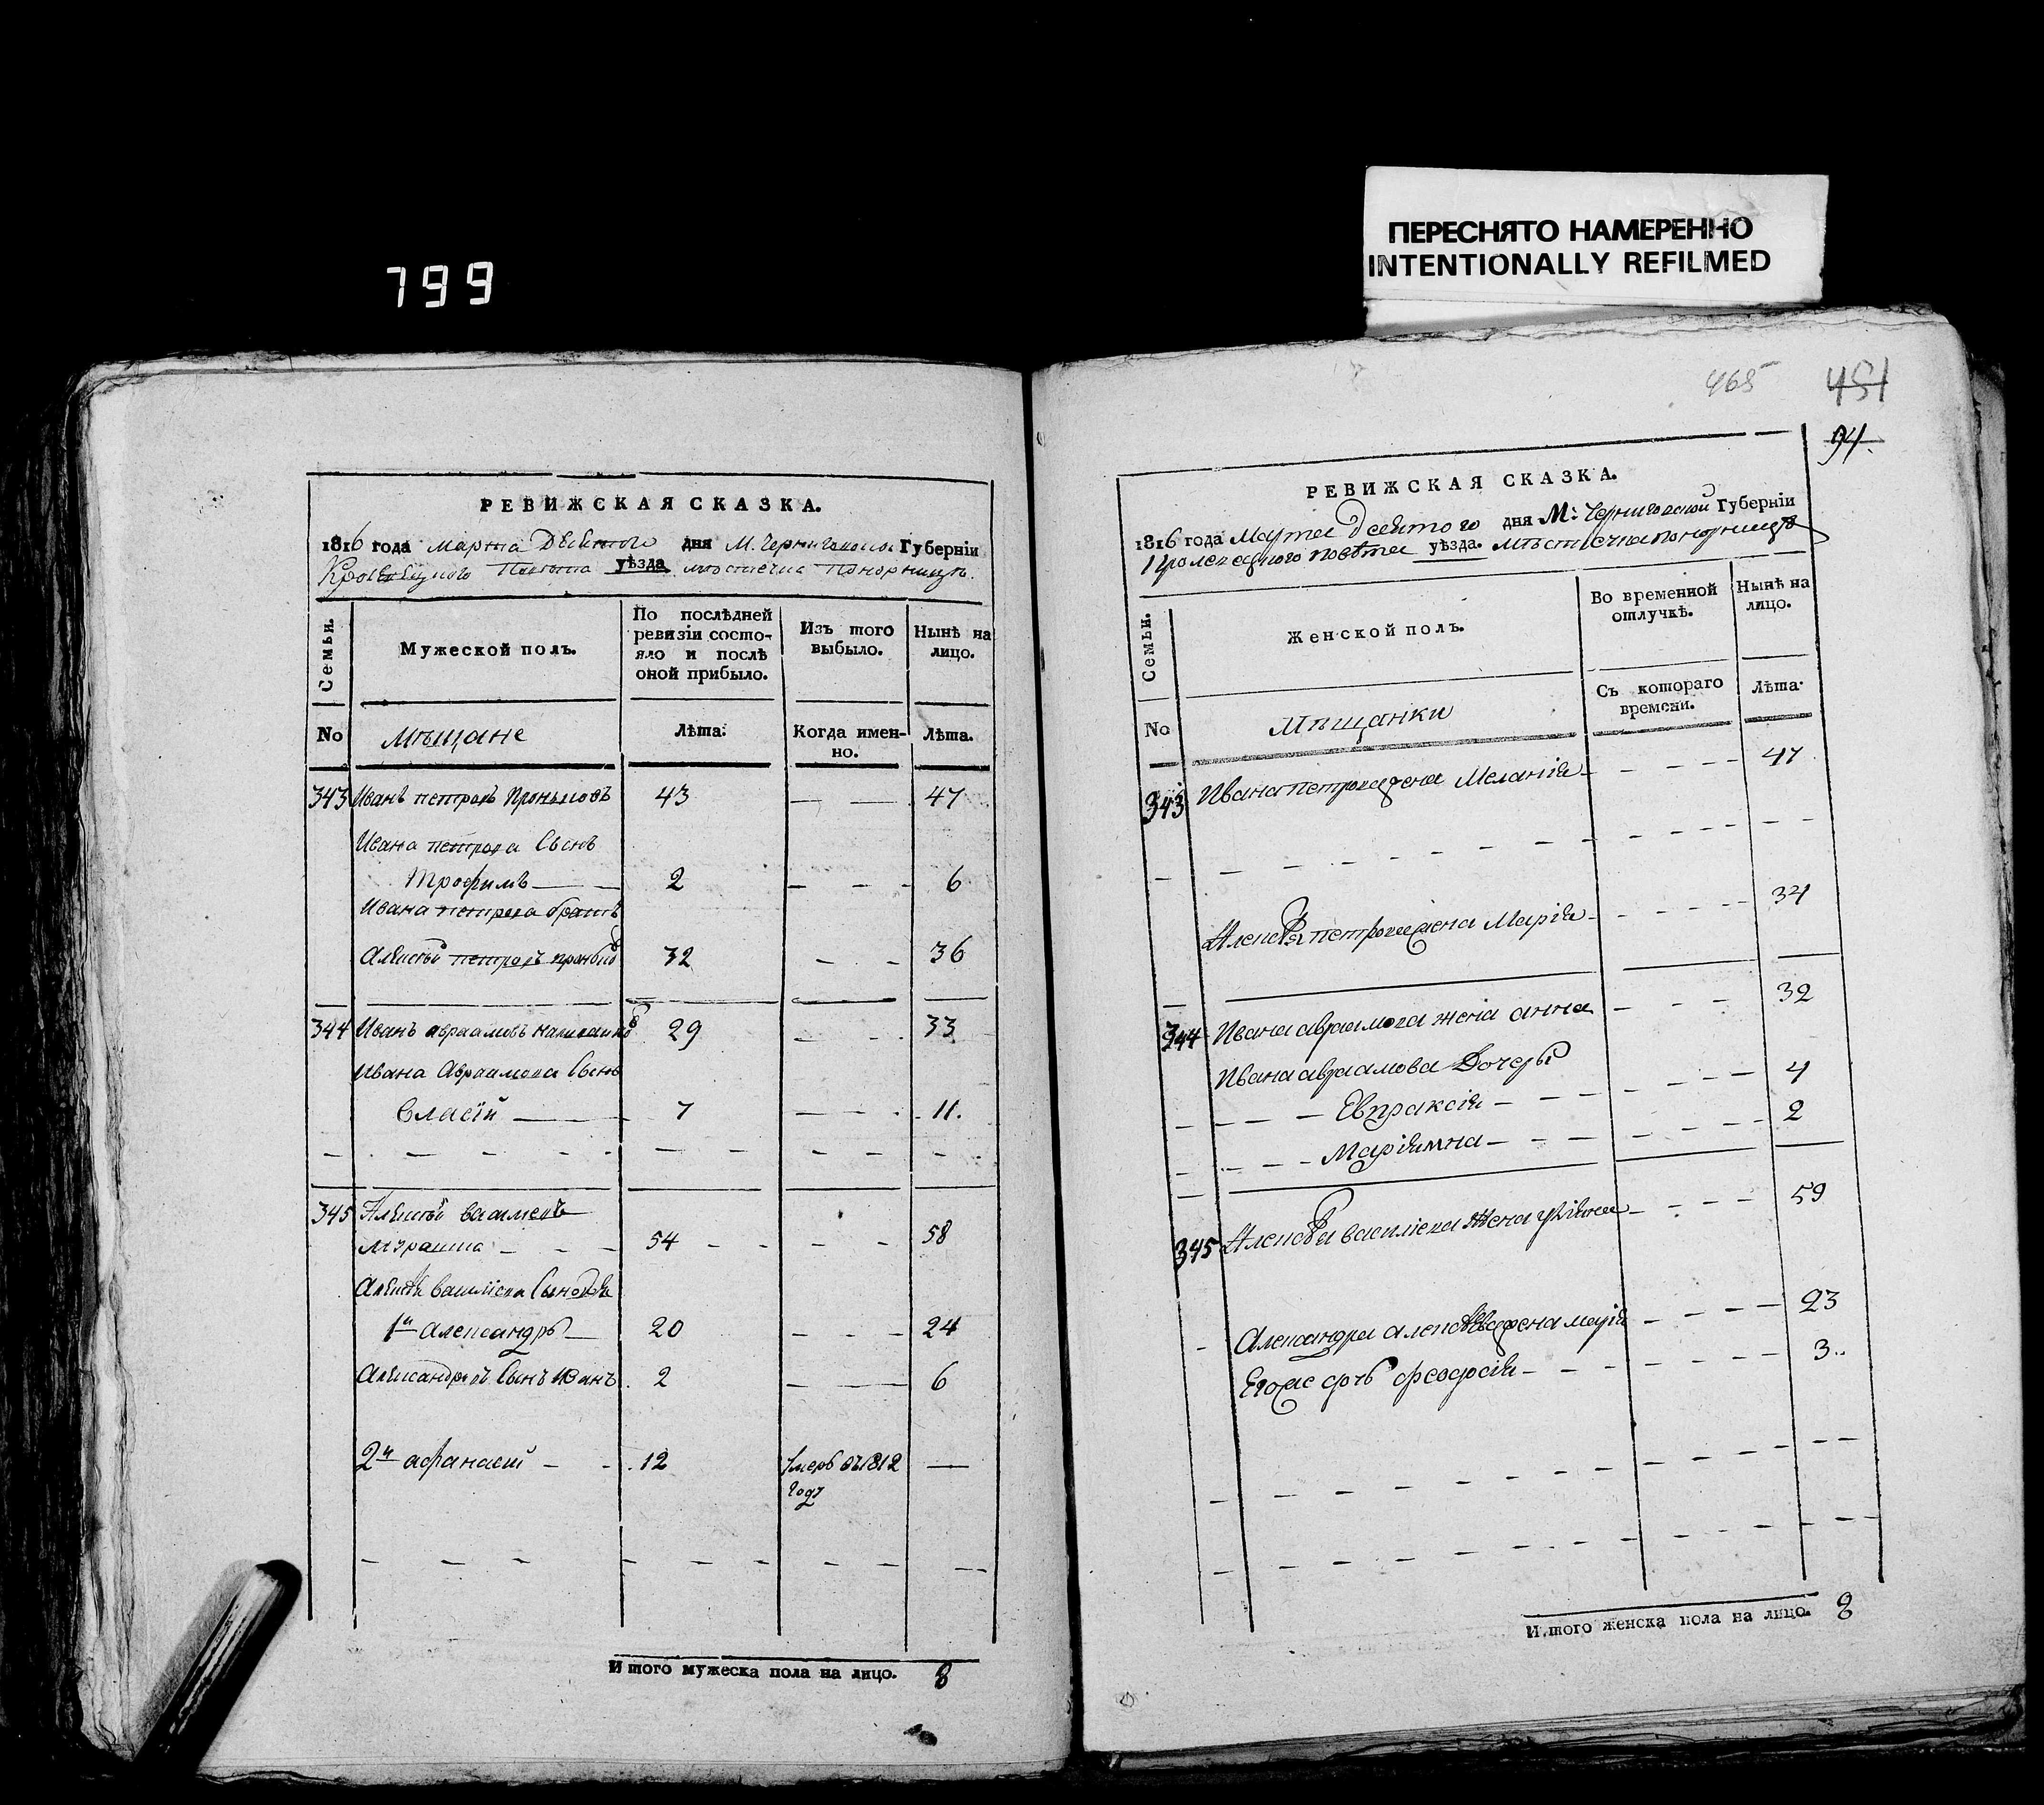 799
ПЕРЕСНЯТО НАМЕРЕННО
INTENTIONALLY REFILMED
РЕВИЖСКАЯ СКАЗКА.
1816 года марта девятого дня М. Черниговской Губерніи
Кролевецкого повѣта уѣзда мѣстечка Понорницѣ.
Семьи.
Мужеской полъ.
По послѣдней ревизіи состояло и послѣ оной прибыло.
Изъ того выбыло.
Нынѣ на лицо.
No
мѣщане
Лѣта.
Когда именно.
Лѣта.
343 Иванъ петровъ 43 — — 47
Ивана петрова Сынъ
Трофимъ — — 2 — — - 6
Ивана петрова братъ
Алексѣй петровъ 32 - - 36
344 Иванъ авраамовъ 29 - - 33
Ивана Авраамова Сынъ
Власій — 7 — - - 11.
345 Алексѣй васильевъ
54 - - - - 58
Алексѣя василіева Сыновья
1й александръ — 20 - - - 24
Александровъ Сынъ Иванъ 2 — 6
2й афанасій - - 12 умеръ въ 1812 —
году
Итого мужеска пола на лицо. 8
465 451
94.
РЕВИЖСКАЯ СКАЗКА.
1816 года Марта девятого дня М: Черниговской Губерніи
Кролевецкого повѣта уѣзда. мѣстечка понорницѣ
Семьи.
Женской полъ.
Во временной отлучкѣ.
Нынѣ на лицо.
No
Мѣщанки
Съ котораго времени.
Лѣта.
343 Ивана петрова жена Меланія - - - - 47
Алексѣя петрова жена Марія - - - - 34
344 Ивана авраамова жена анна - - - 32
Ивана авраамова Дочеры
Евпраксія - - - - 4
Маріямна - - - - 2
345 Алексѣя василіева жена - - - 59
Александра алексѣева жена марія - - - - 23
Егоже дочь феодосія - - - - 3..
Итого женска пола на лицо. 8